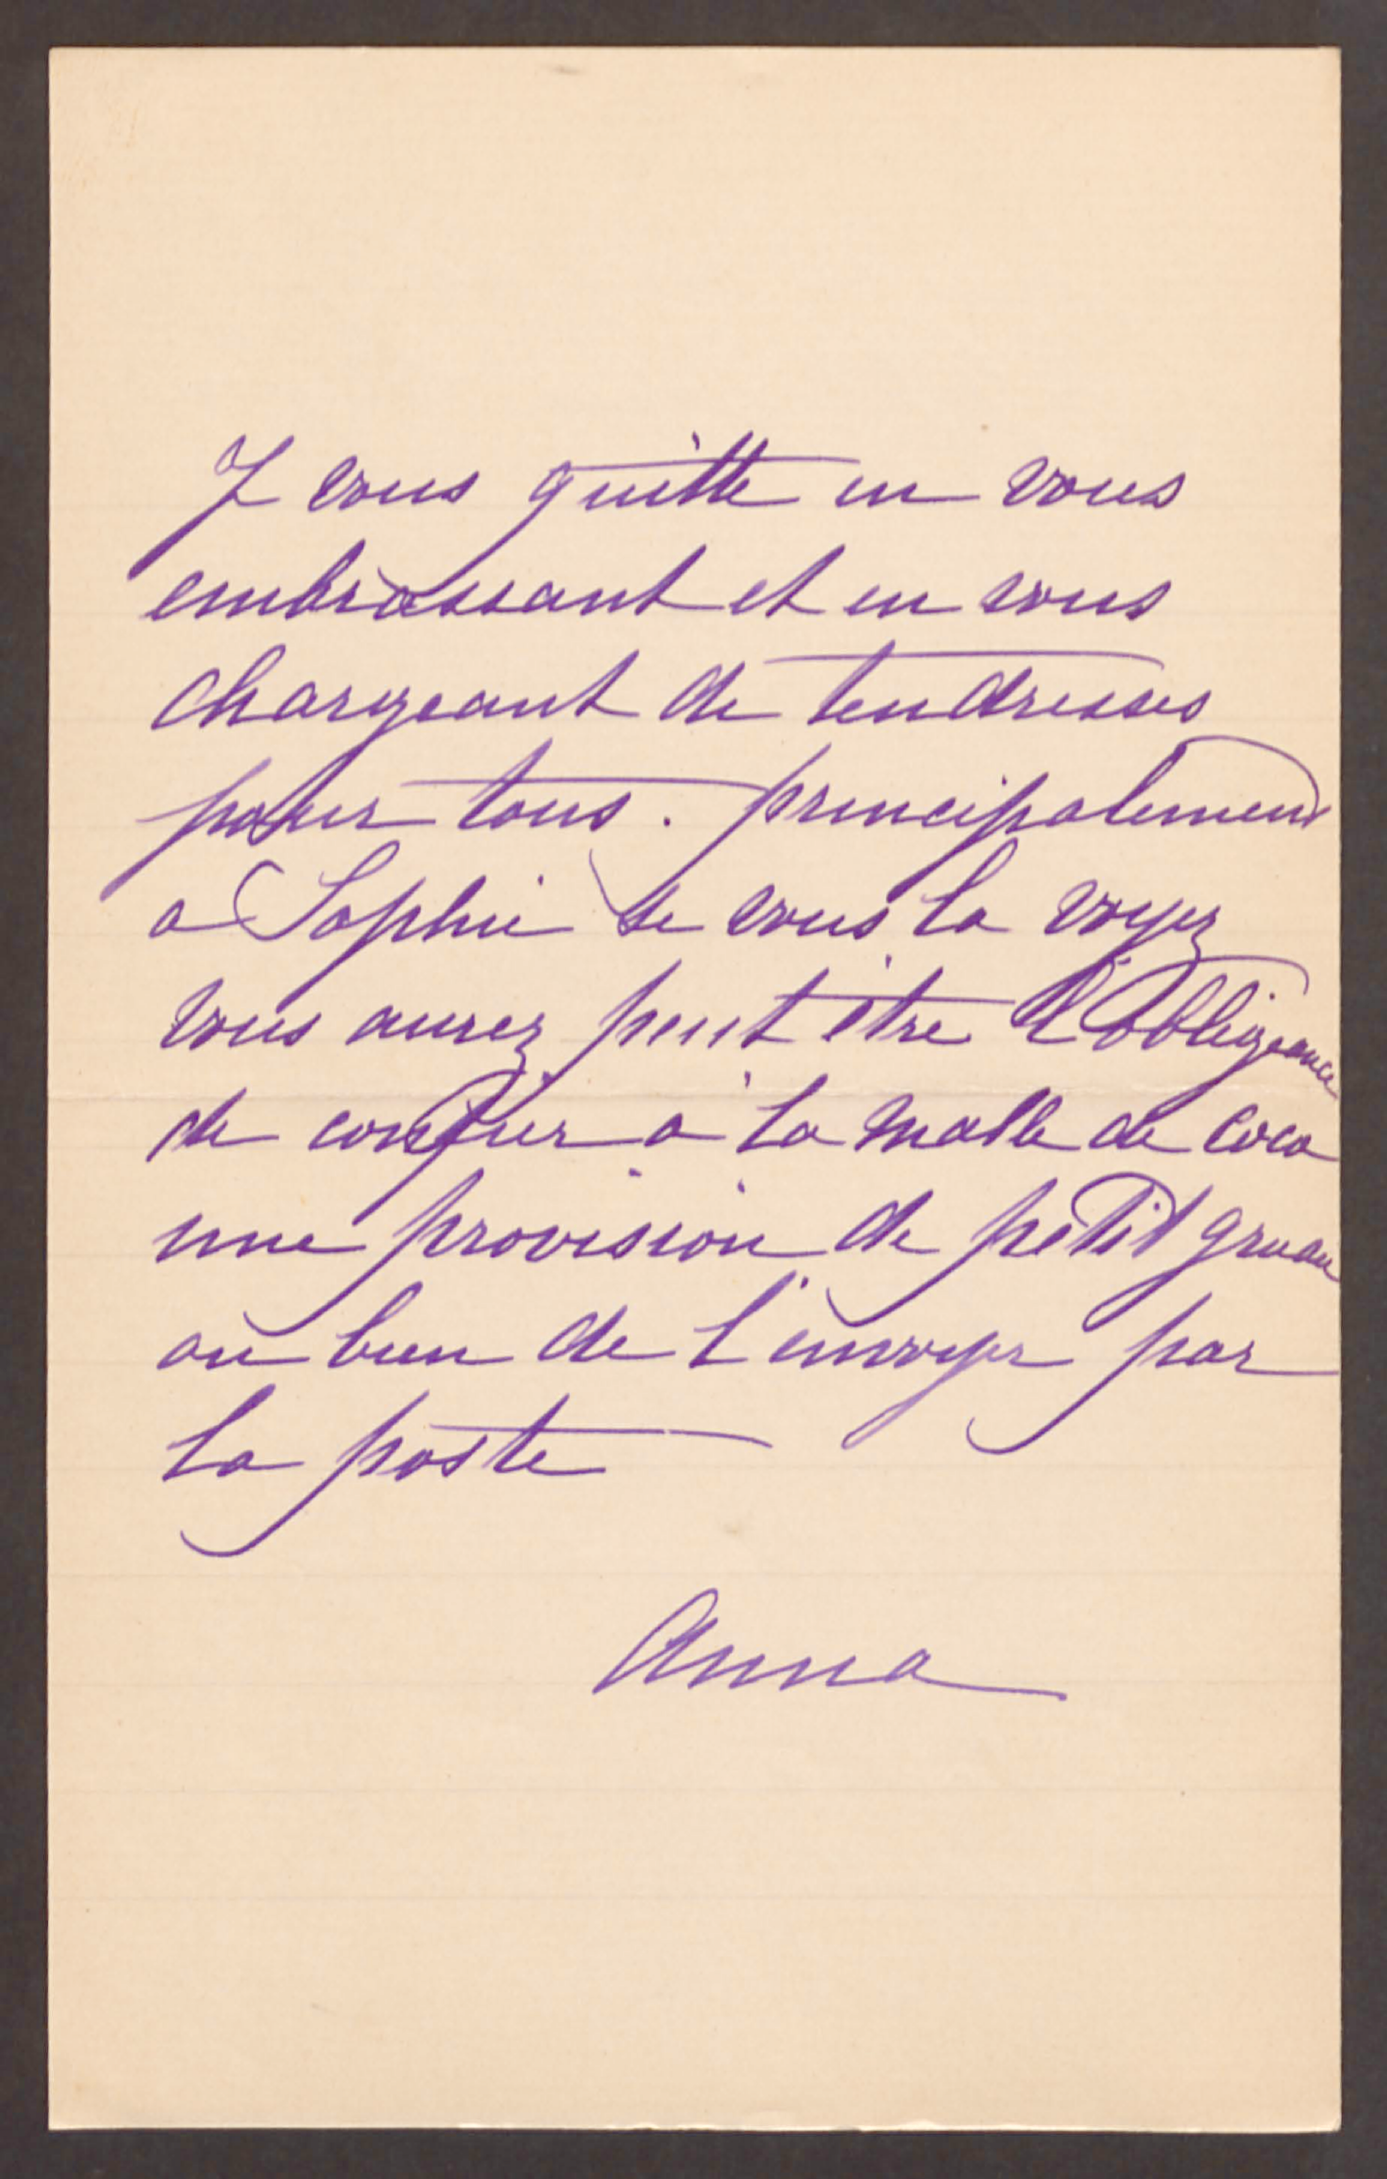 J vous quitte en vous
embrassant et en vous
chargeant de tendresses
pour tous. principalement
a Sophie se vous la voyez
vous aurez peut être l'obligeance
de confier a la malle de coco
une provision de petit gruau
ou bien de l'envoyer par
la poste
Anna